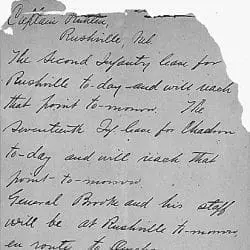 Captain
Rushville, Neb.
The Second Infantry leave for
Rushville to-day and will reach
that point to-morrow. The
Seventeenth Inf leave for Chadron
to-day and will reach that
point to-morrow.
General Brooke and his staff
will be at Rushville to-morrow
en route to